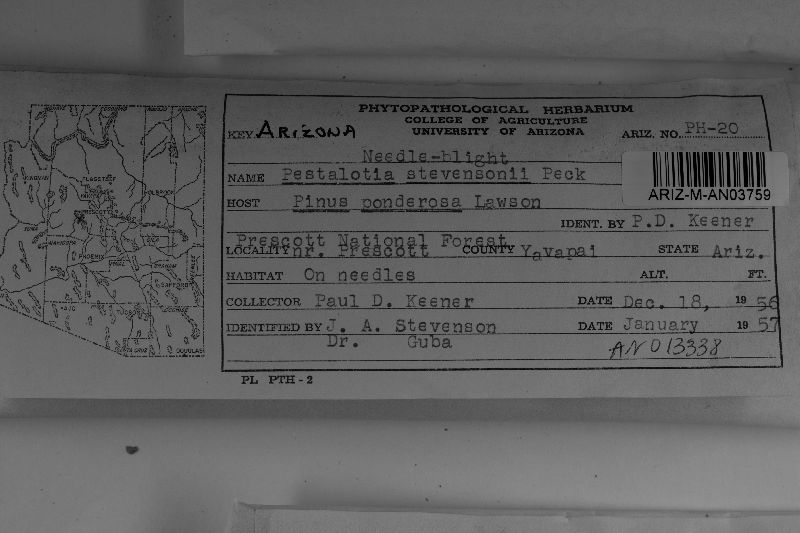 PHYTOPATHOLOGICAL HERBARIUM
COLLEGE OF AGRICULTURE
UNIVERSITY OF ARIZONA
KEY ARIZONA ARIZ. NO. PH-20
Needle-blight
NAME Pestalotia stevensonii Peck
ARIZ-M-AN03759
HOST Pinus ponderosa Lawson
IDENT. BY P.D. Keener
Prescott National Forest
LOCALITY nr. Prescott COUNTY Yavapai STATE Ariz.
HABITAT On needles ALT. FT.
COLLECTOR Paul D. Keener DATE Dec. 18, 1956
IDENTIFIED BY J. A. Stevenson DATE January 1957
Dr. Guba
AN013338
PL PTH-2
FLAGSTAFF
PRESCOTT
PHOENIX
SAFFORD
DOUGLAS